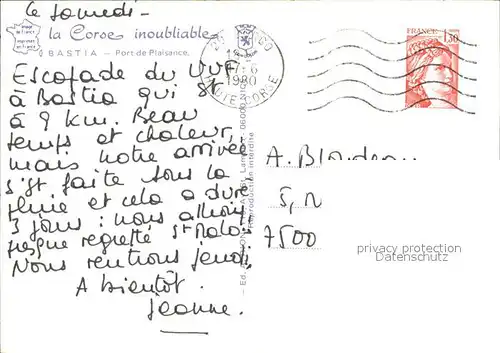 le samedi -
la Corse inoubliable
BASTIA - Port de Plaisance.
Escapade du VVF
à Bastia qui st
à 9 km. Beau
temps et chaleur,
mais notre arrivée
s'st faite sous la
pluie et cela a duré
3 jours : nous allions
presque regretté st Malo.
Nous rentions jeudi,
A bientôt.
Jeanne.
1980
HAUTE CORSE
FRANCE
Reproduction interdite
A.
7500
privacy protection
Datenschutz